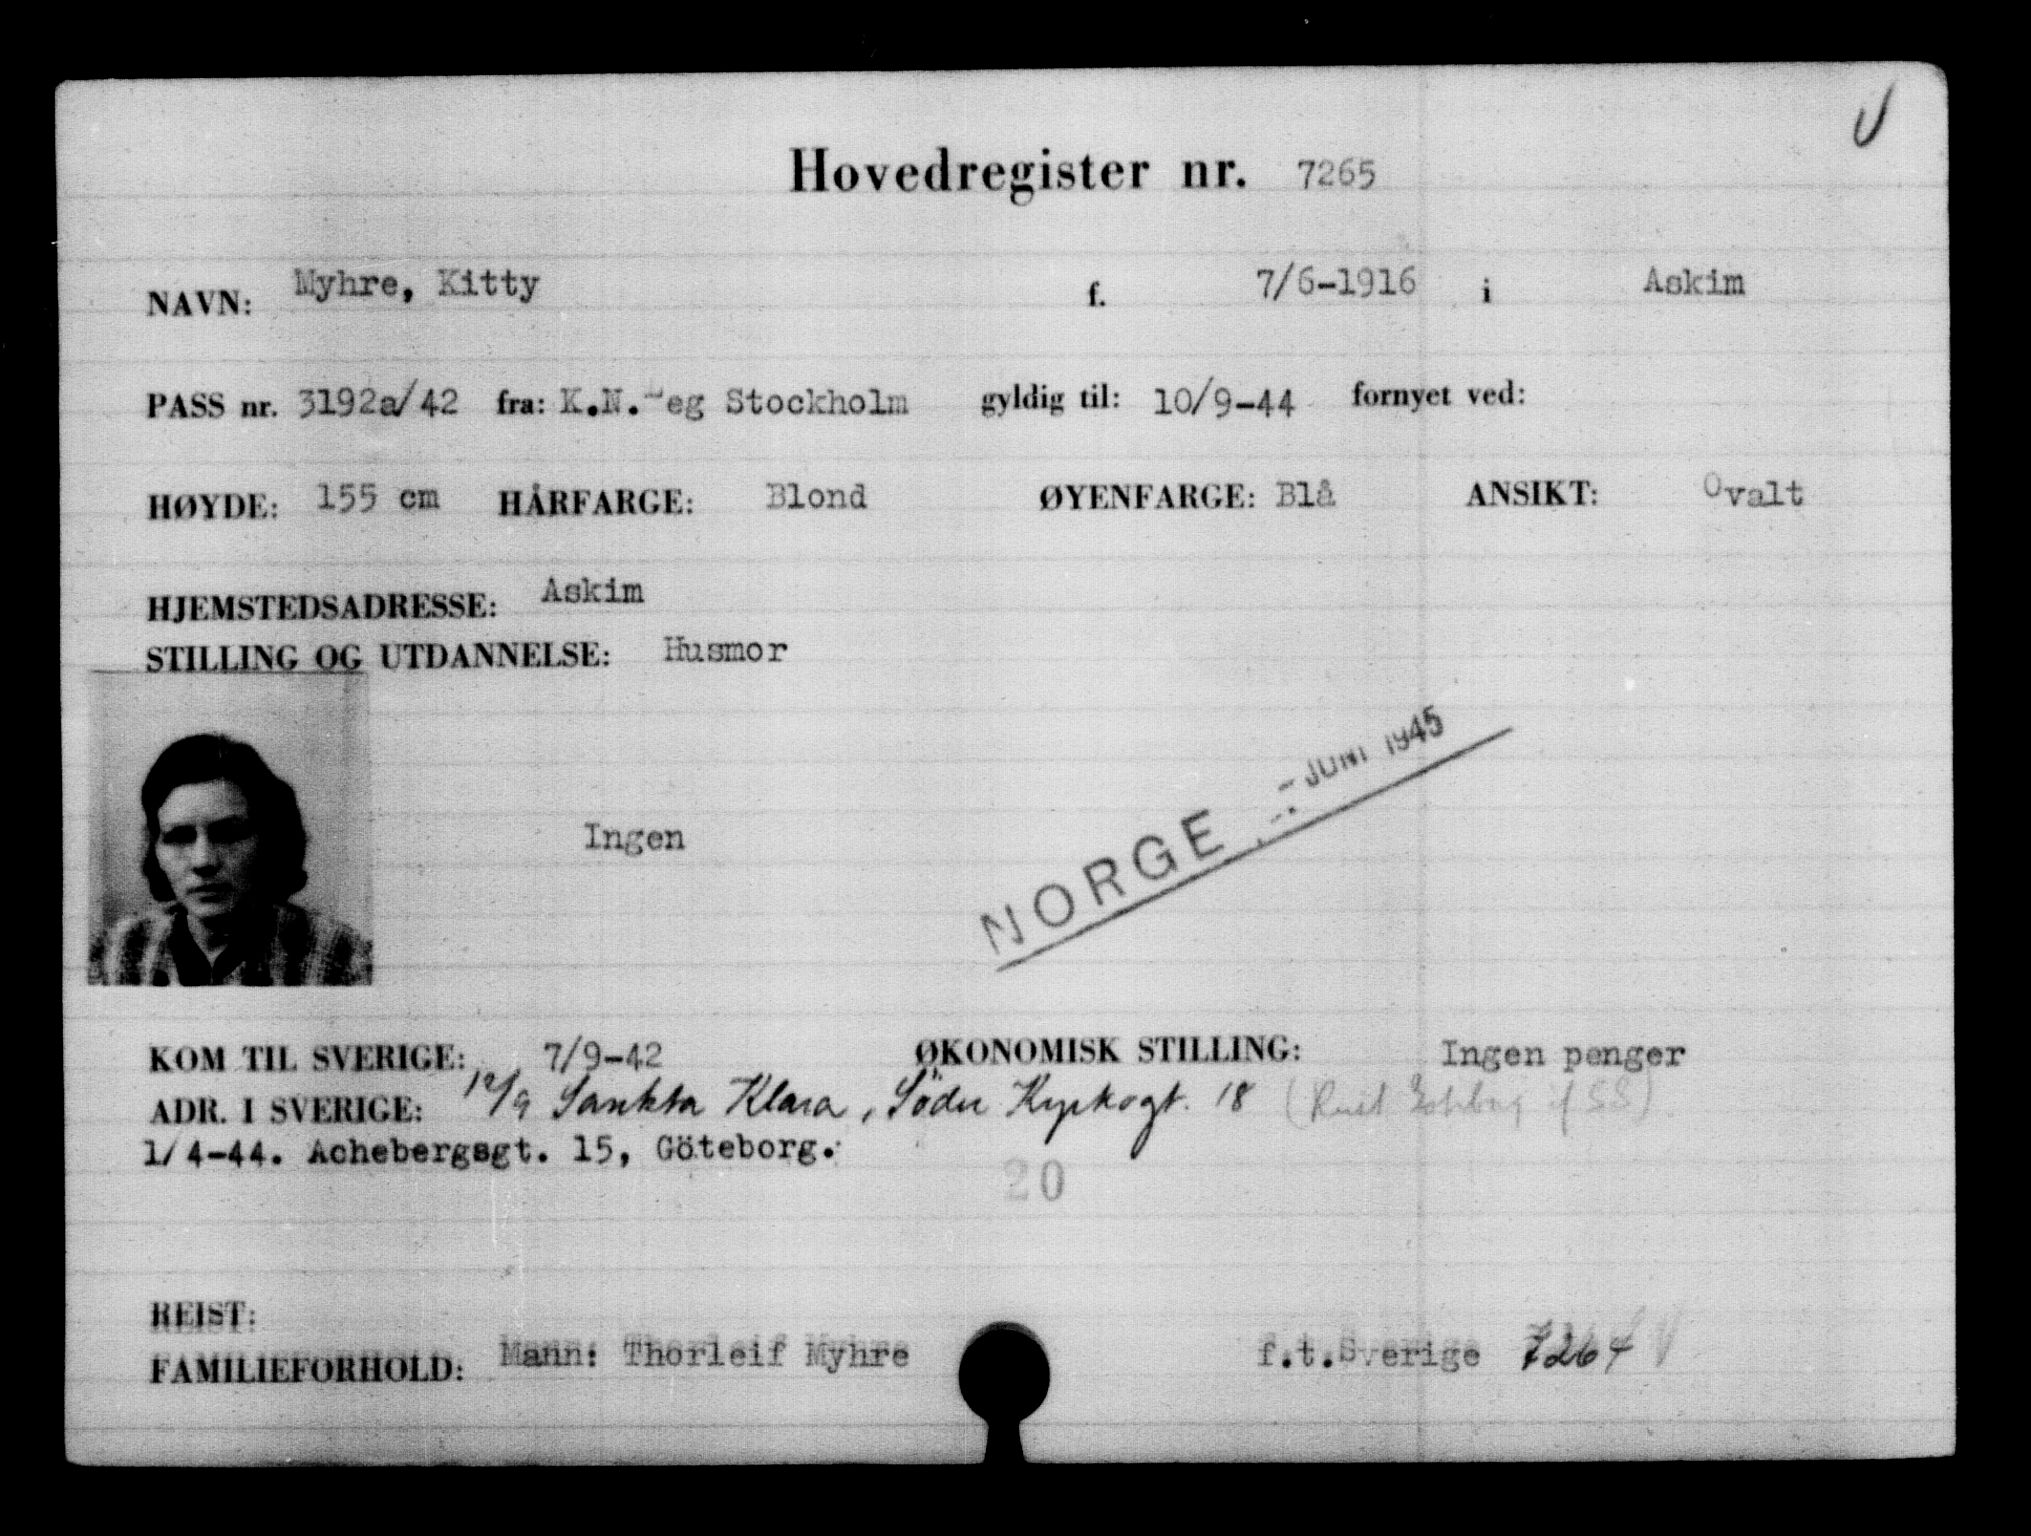 Hovedregister nr. 7265
NAVN: Myhre, Kitty f. 7/6-1916 i Askim
PASS nr. 3192a/42 fra: K.N.Leg Stockholm gyldig til: 10/9-44 fornyet ved:
HØYDE: 155 cm HÅRFARGE: Blond ØYENFARGE: Blå ANSIKT: Ovalt
HJEMSTEDSADRESSE: Askim
STILLING OG UTDANNELSE: Husmor
NORGE - JUNI 1945
Ingen
KOM TIL SVERIGE: 7/9-42 ØKONOMISK STILLING: Ingen penger
ADR. I SVERIGE: 12/9 Sankta Klara, Söder Kyrkogt. 18
1/4-44. Achebergsgt. 15, Göteborg.
20
REIST:
FAMILIEFORHOLD: Mann: Thorleif Myhre f.t.Sverige 7264